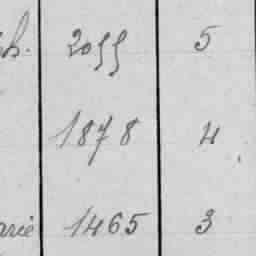 h. 2055 5
1878 4
arie 1465 3